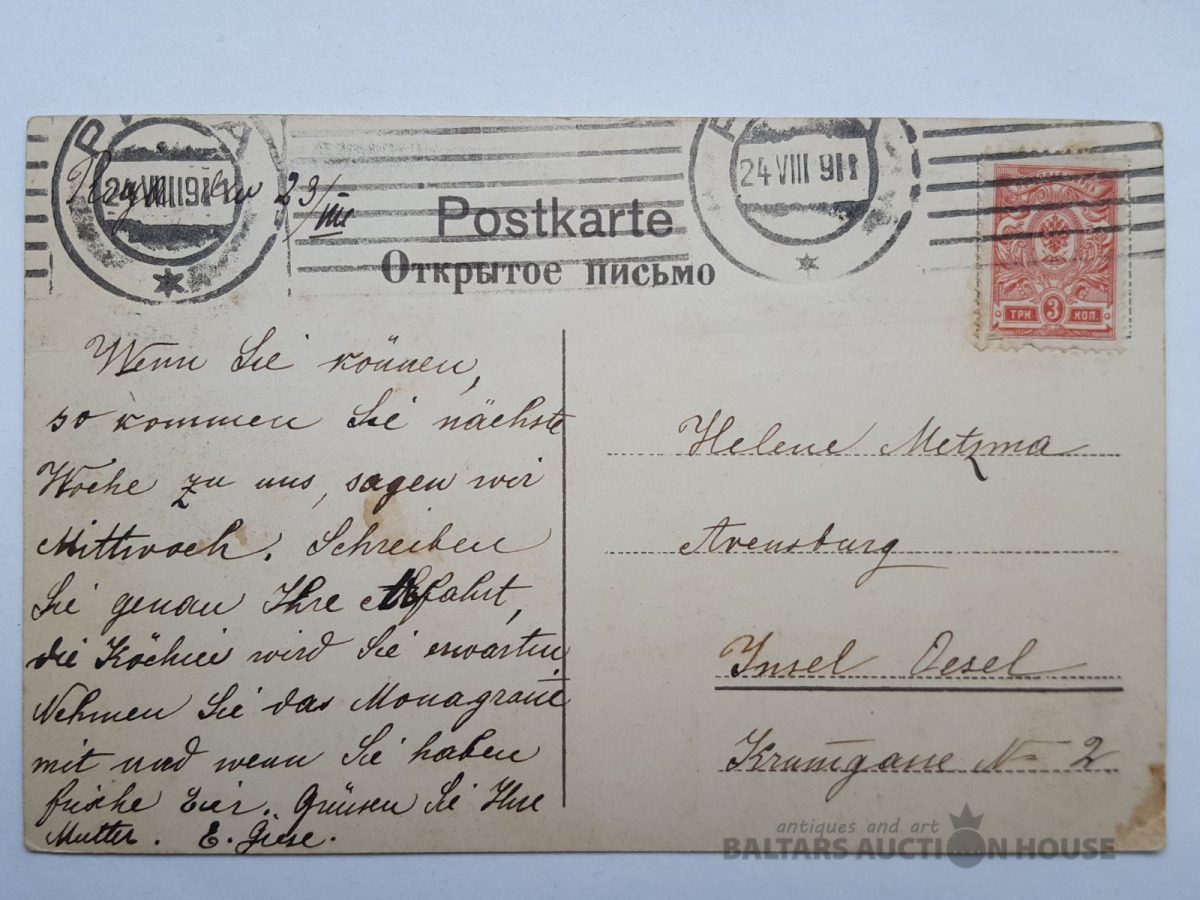 24 VIII 911
23/VIII
24 VIII 911
Postkarte
Открытое письмо
3
ТРИ КОП.
Wenn Sie können,
so kommen Sie nächste
Woche zu uns, sagen wir
Mittwoch. Schreiben
Sie genau Ihre Abfahrt,
die Köchin wird Sie erwarten
Nehmen Sie das Monagram̅
mit und wenn Sie haben
frische Eier. Grüssen Sie Ihre
Mutter. E. Giese.
Helene Metzma
Arensburg
Insel Oesel
Kram̅gasse № 2
antiques and art
BALTARS AUCTION HOUSE